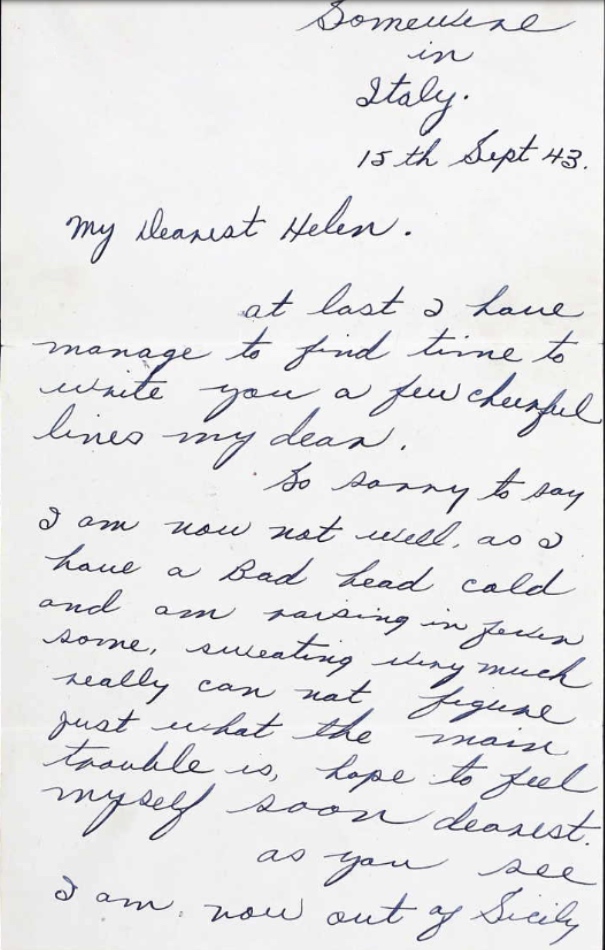 Somewhere
in
Italy.
15th Sept 43.
My Dearest Helen.
at last I have
manage to find time to
write you a few cheerful
lines my dear.
So sorry to say
I am now not well, as I
have a Bad head cold
and am raising in fever
some, sweating very much
really can not figure
just what the main
trouble is, hope to feel
myself soon dearest.
as you see
I am now out of Sicily